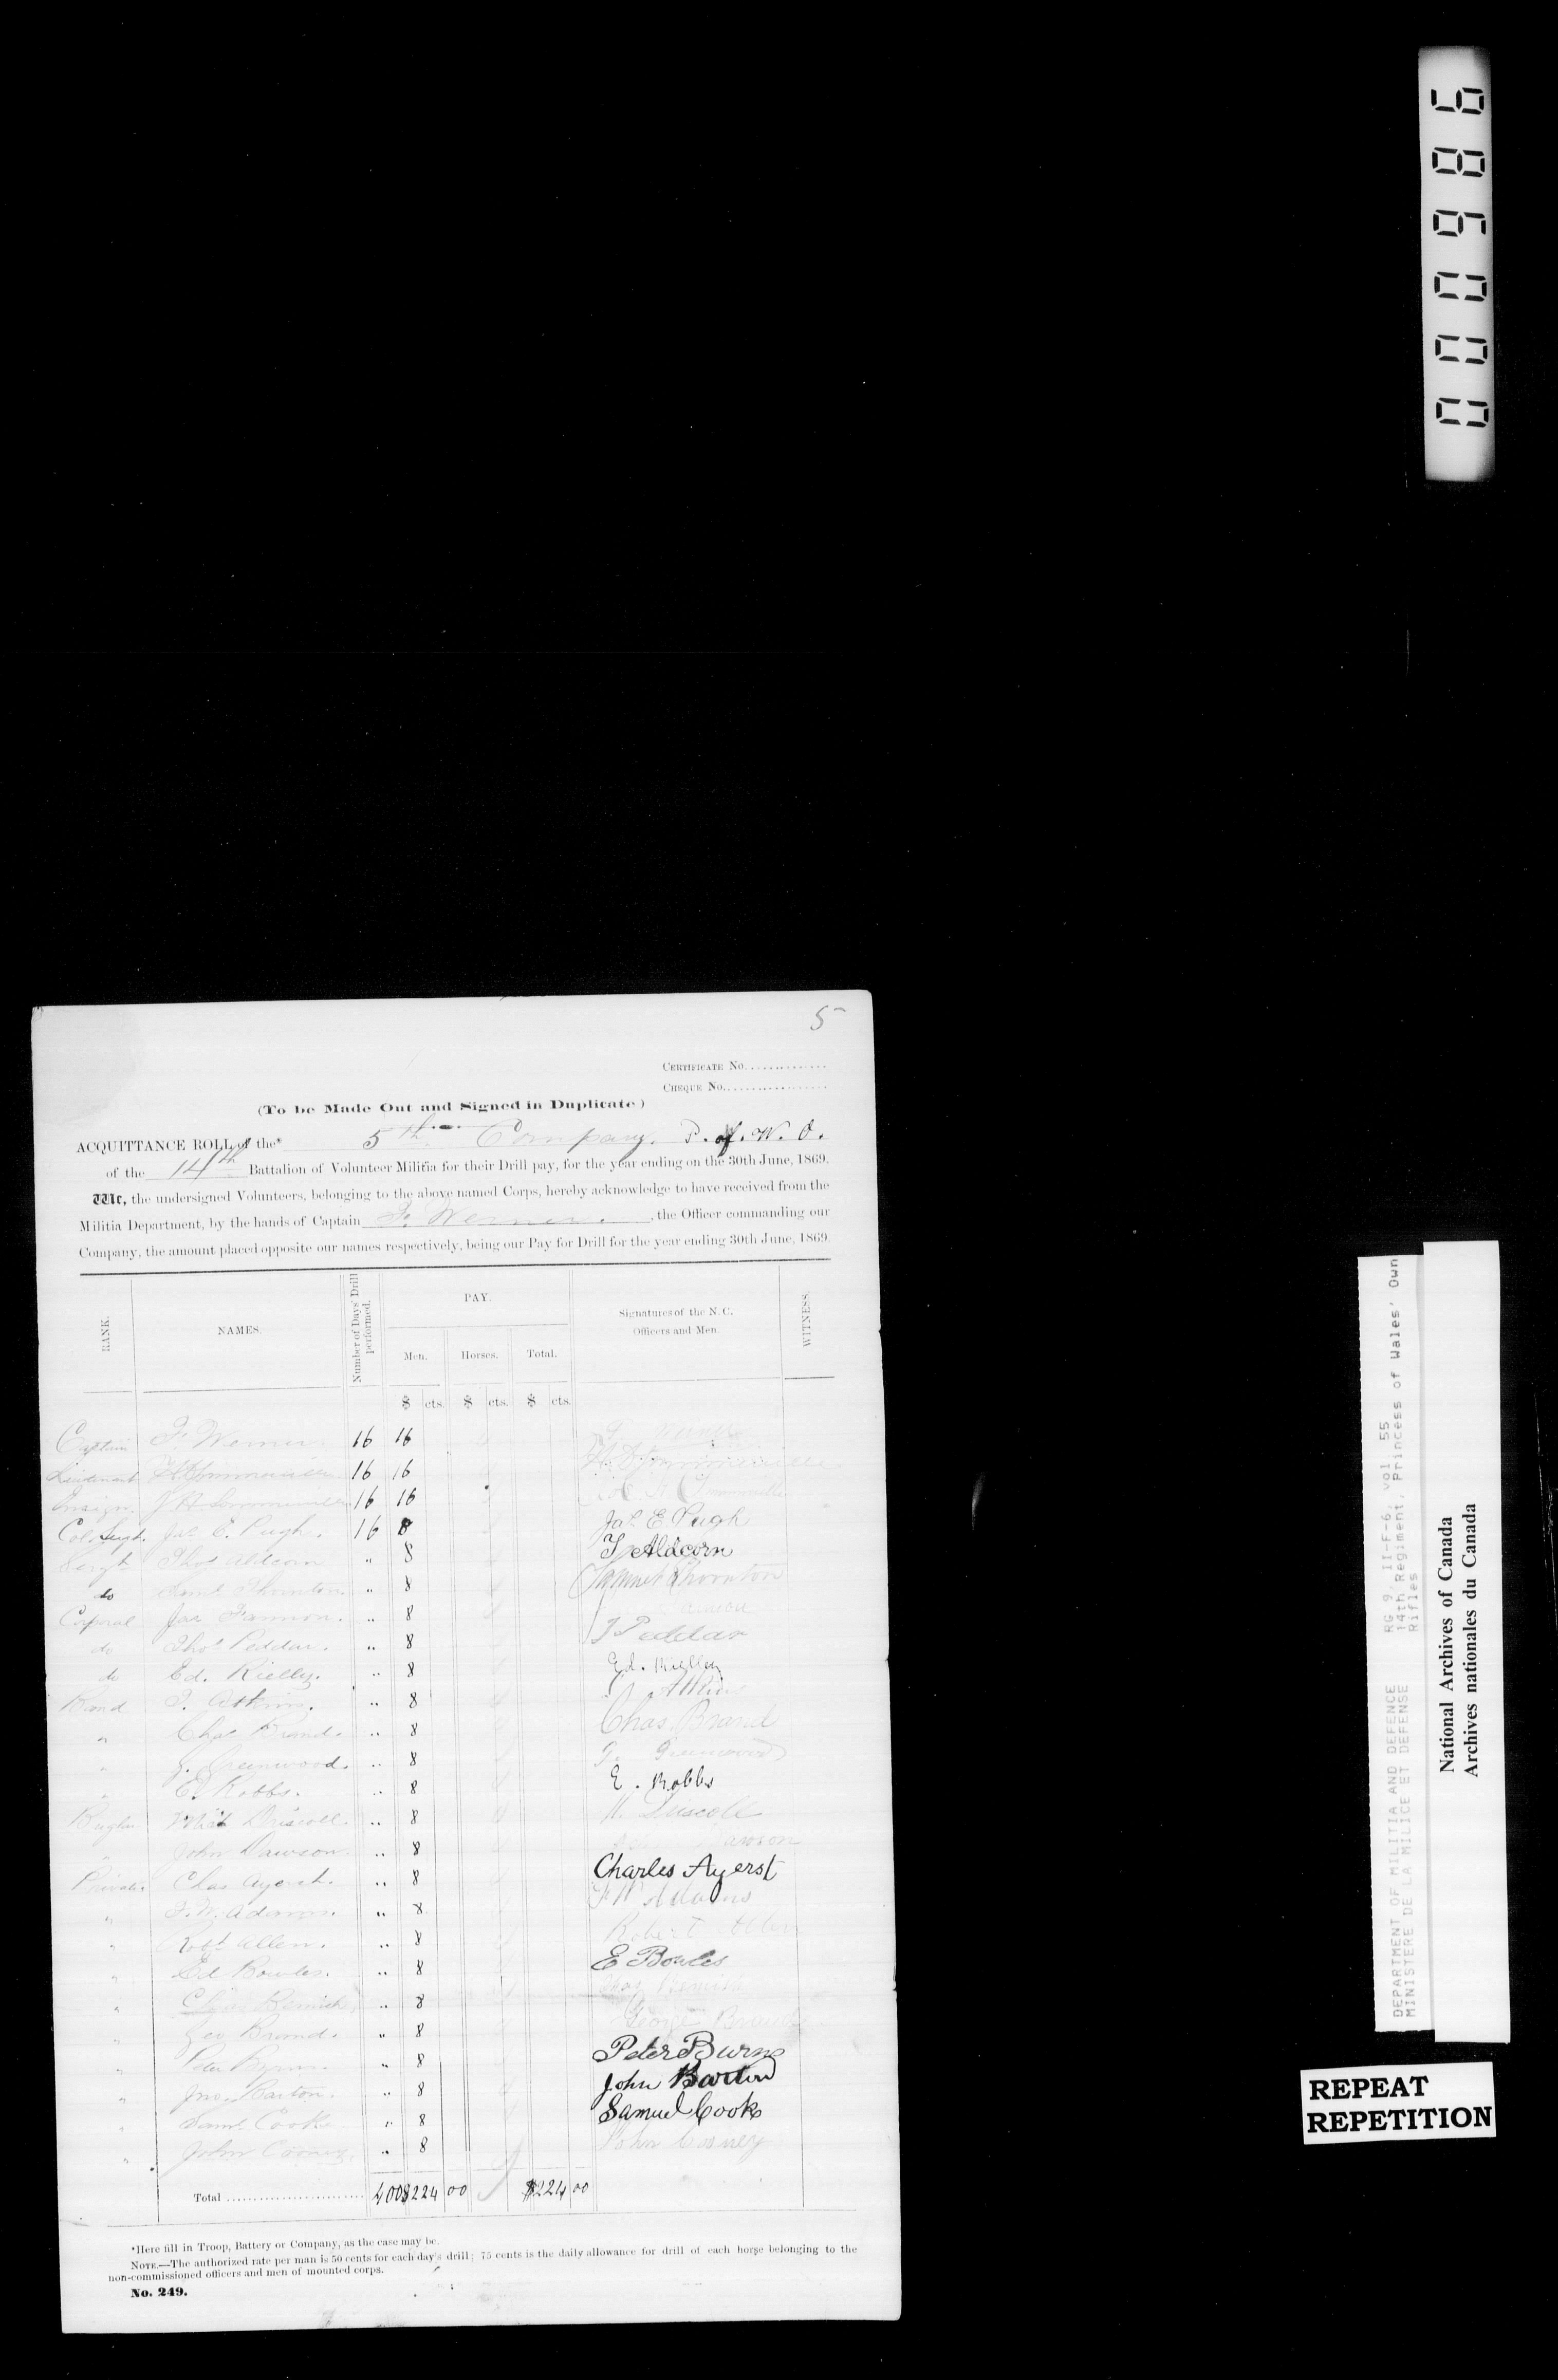 000986
5
CERTIFICATE No..............
CHEQUE No..................
(To be Made Out and Signed in Duplicate)
ACQUITTANCE ROLL of the* 5th Company. P. of. W. O.
of the 14th Battalion of Volunteer Militia for their Drill pay, for the year ending on the 30th June, 1869.
We, the undersigned Volunteers, belonging to the above named Corps, hereby acknowledge to have received from the
Militia Department, by the hands of Captain F. Werner. , the Officer commanding our
Company, the amount placed opposite our names respectively, being our Pay for Drill for the year ending 30th June, 1869.
RANK. NAMES. Number of Days' Drill performed. PAY. Signatures of the N.C. Officers and Men. WITNESS.
Men. Horses. Total.
$ cts. $ cts. $ cts.
Captain F. Werner. 16 16
Lieutenant 16 16
Ensign. 16 16
Col. Sergt. Jas E. Pugh. 16 8 Jas. E Pugh
Sergt Thos Aldcorn " 8 T Aldcorn
do Saml Thornton. " 8 Samuel Thornton
Corporal Jas Fannon. " 8
do Thos Peddar. " 8 T Peddar
do Ed. Rielly. " 8 Ed. Rielly
Band T. Atkins. " 8
" Chas Brand. " 8 Chas. Brand
" G. Greenwood. " 8 G. Greenwood
" E. Robbs. " 8 E. Robbs
Bugler Driscoll. " 8 Driscoll
" John Dawson. " 8 Dawson
Privates Chas Ayerst. " 8 Charles Ayerst
" F. W. Adams. " 8 F W Adams
" Robt Allen. " 8 Robert Allen
" Ed Bowles. " 8 E Bowles
" " 8
" Geo Brand. " 8 George Brand
" Peter Byrns. " 8 Peter Burns
" Jno. Barton. " 8 John Barton
" Saml Cook. " 8 Samuel Cook
" John Cooney. " 8 John Cooney
Total .......................... 400 $224 00 $224 00
*Here fill in Troop, Battery or Company, as the case may be.
NOTE.—The authorized rate per man is 50 cents for each day's drill; 75 cents is the daily allowance for drill of each horse belonging to the
non-commissioned officers and men of mounted corps.
No. 249.
DEPARTMENT OF MILITIA AND DEFENCE RG 9, II-F-6, vol 55
MINISTERE DE LA MILICE ET DEFENSE 14th Regiment, Princess of Wales' Own
Rifles
National Archives of Canada
Archives nationales du Canada
REPEAT
REPETITION